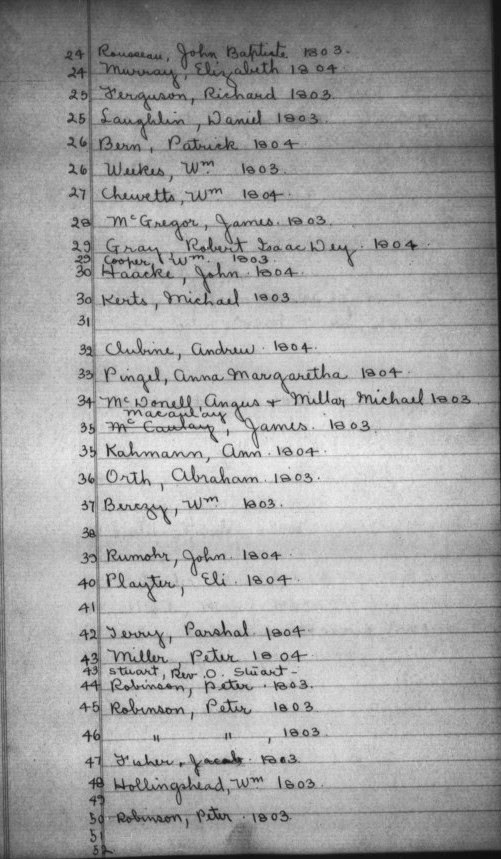 24 Rousseau, John Baptiste 1803.
24 Murray, Elizabeth 1804.
25 Ferguson, Richard 1803.
25 Laughlin, Daniel 1803.
26 Bern, Patrick 1804
26 Weekes, Wm 1803.
27 Chewetts, Wm 1804.
28 McGregor, James. 1803.
29 Gray Robert Isaac Dey. 1804.
29 Cooper, Wm. 1803.
30 Haacke, John. 1804.
30 Kerts, Michael 1803
31
32 Clubine, Andrew. 1804.
33 Pingel, Anna Margaretha 1804.
34 McDonell, Angus + Millar Michael 1803
macaulay
35 McCaulay, James. 1803.
35 Kahmann, Ann. 1804.
36 Orth, Abraham. 1803.
37 Berczy, Wm. 1803.
38
39 Rumohr, John. 1804.
40 Playter, Eli. 1804.
41
42 Terry, Parshal 1804
43 Miller, Peter 1804.
43 Stuart, Rev. O. Stuart -
44 Robinson, Peter. 1803.
45 Robinson, Peter 1803
46 " " , 1803.
47 Jacob. 1803.
48 Hollingshead, Wm 1803.
49
50 Robinson, Peter. 1803.
51
52